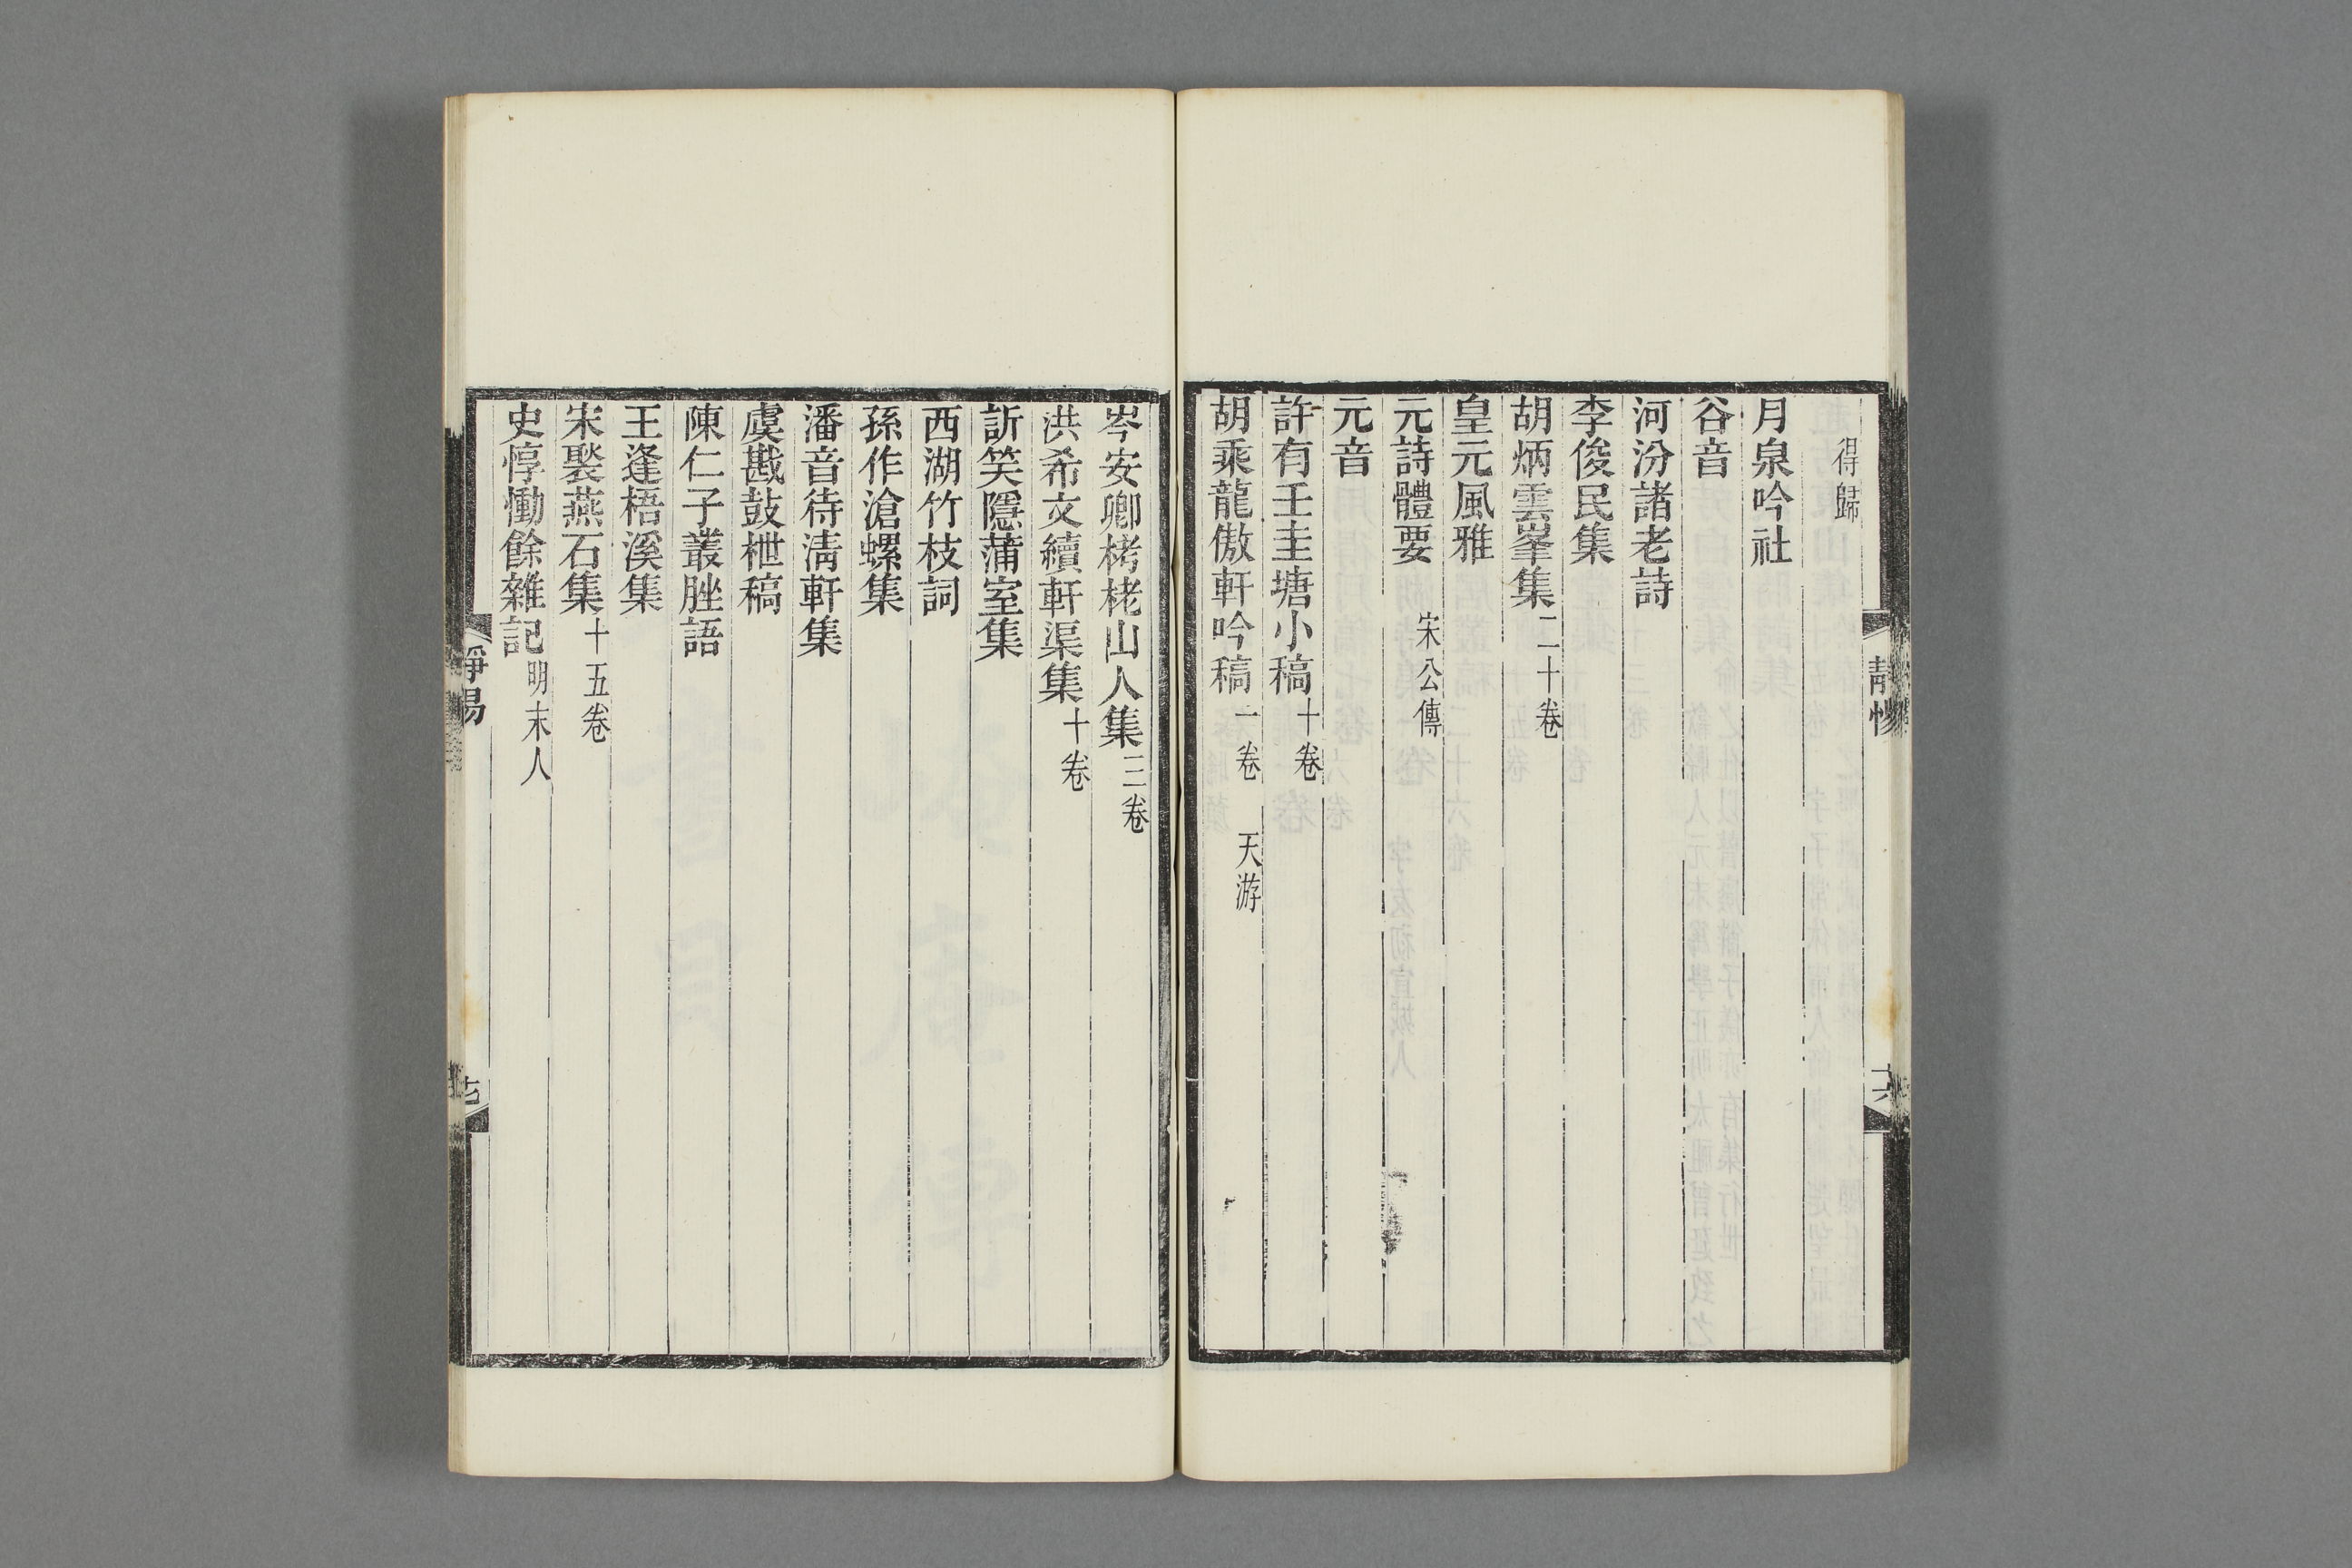 得歸
月泉吟社
谷音
河汾諸老詩
李俊民集
胡炳雲峯集二十卷
皇元風雅
元詩體要 宋公傳
元音
許有壬圭塘小稿十卷
胡乘龍傲軒吟稿一卷 天游
岑安卿栲栳山人集三卷
洪希文續軒渠集十卷
訢笑隱蒲室集
西湖竹枝詞
孫作滄螺集
潘音待淸軒集
虞戡鼓枻稿
陳仁子叢脞語
王逢梧溪集
宋褧燕石集十五卷
史惇慟餘雜記明末人